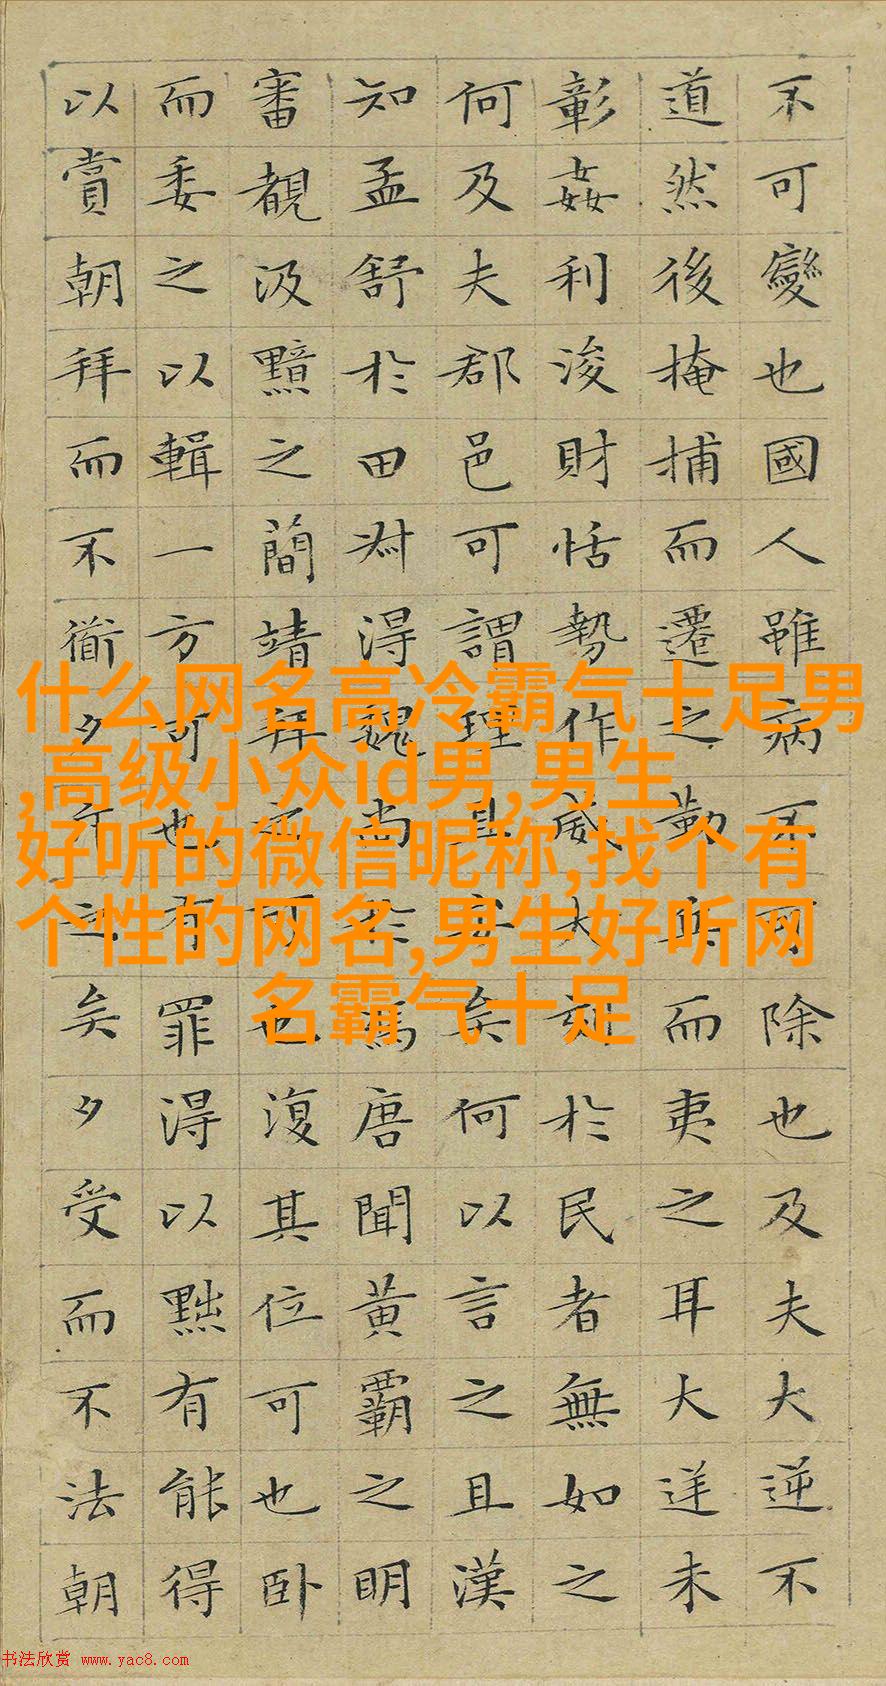 不可變也國人雖病不可除也及夫大逆不
道然後掩捕而遷之勒兵而夷之耳大逆未
彰姦利浚財恬勢作威大刻於民者無如之
何及夫郡邑可謂理且安矣何以言之且漢
知孟舒於田叔得魏尚於馮唐聞黃霸之明
審覩汲黯之簡靖拜之可也復其位可也卧
而委之以輯一方可也有罪得以黜有能得
以賞朝拜而不衜夕斥之矣夕受而不法朝
什么网名高冷霸气十足男
,高级小众id男,男生
好听的微信昵称,找个有
个性的网名,男生好听网
名霸气十足
书法欣赏 www.yac8.com